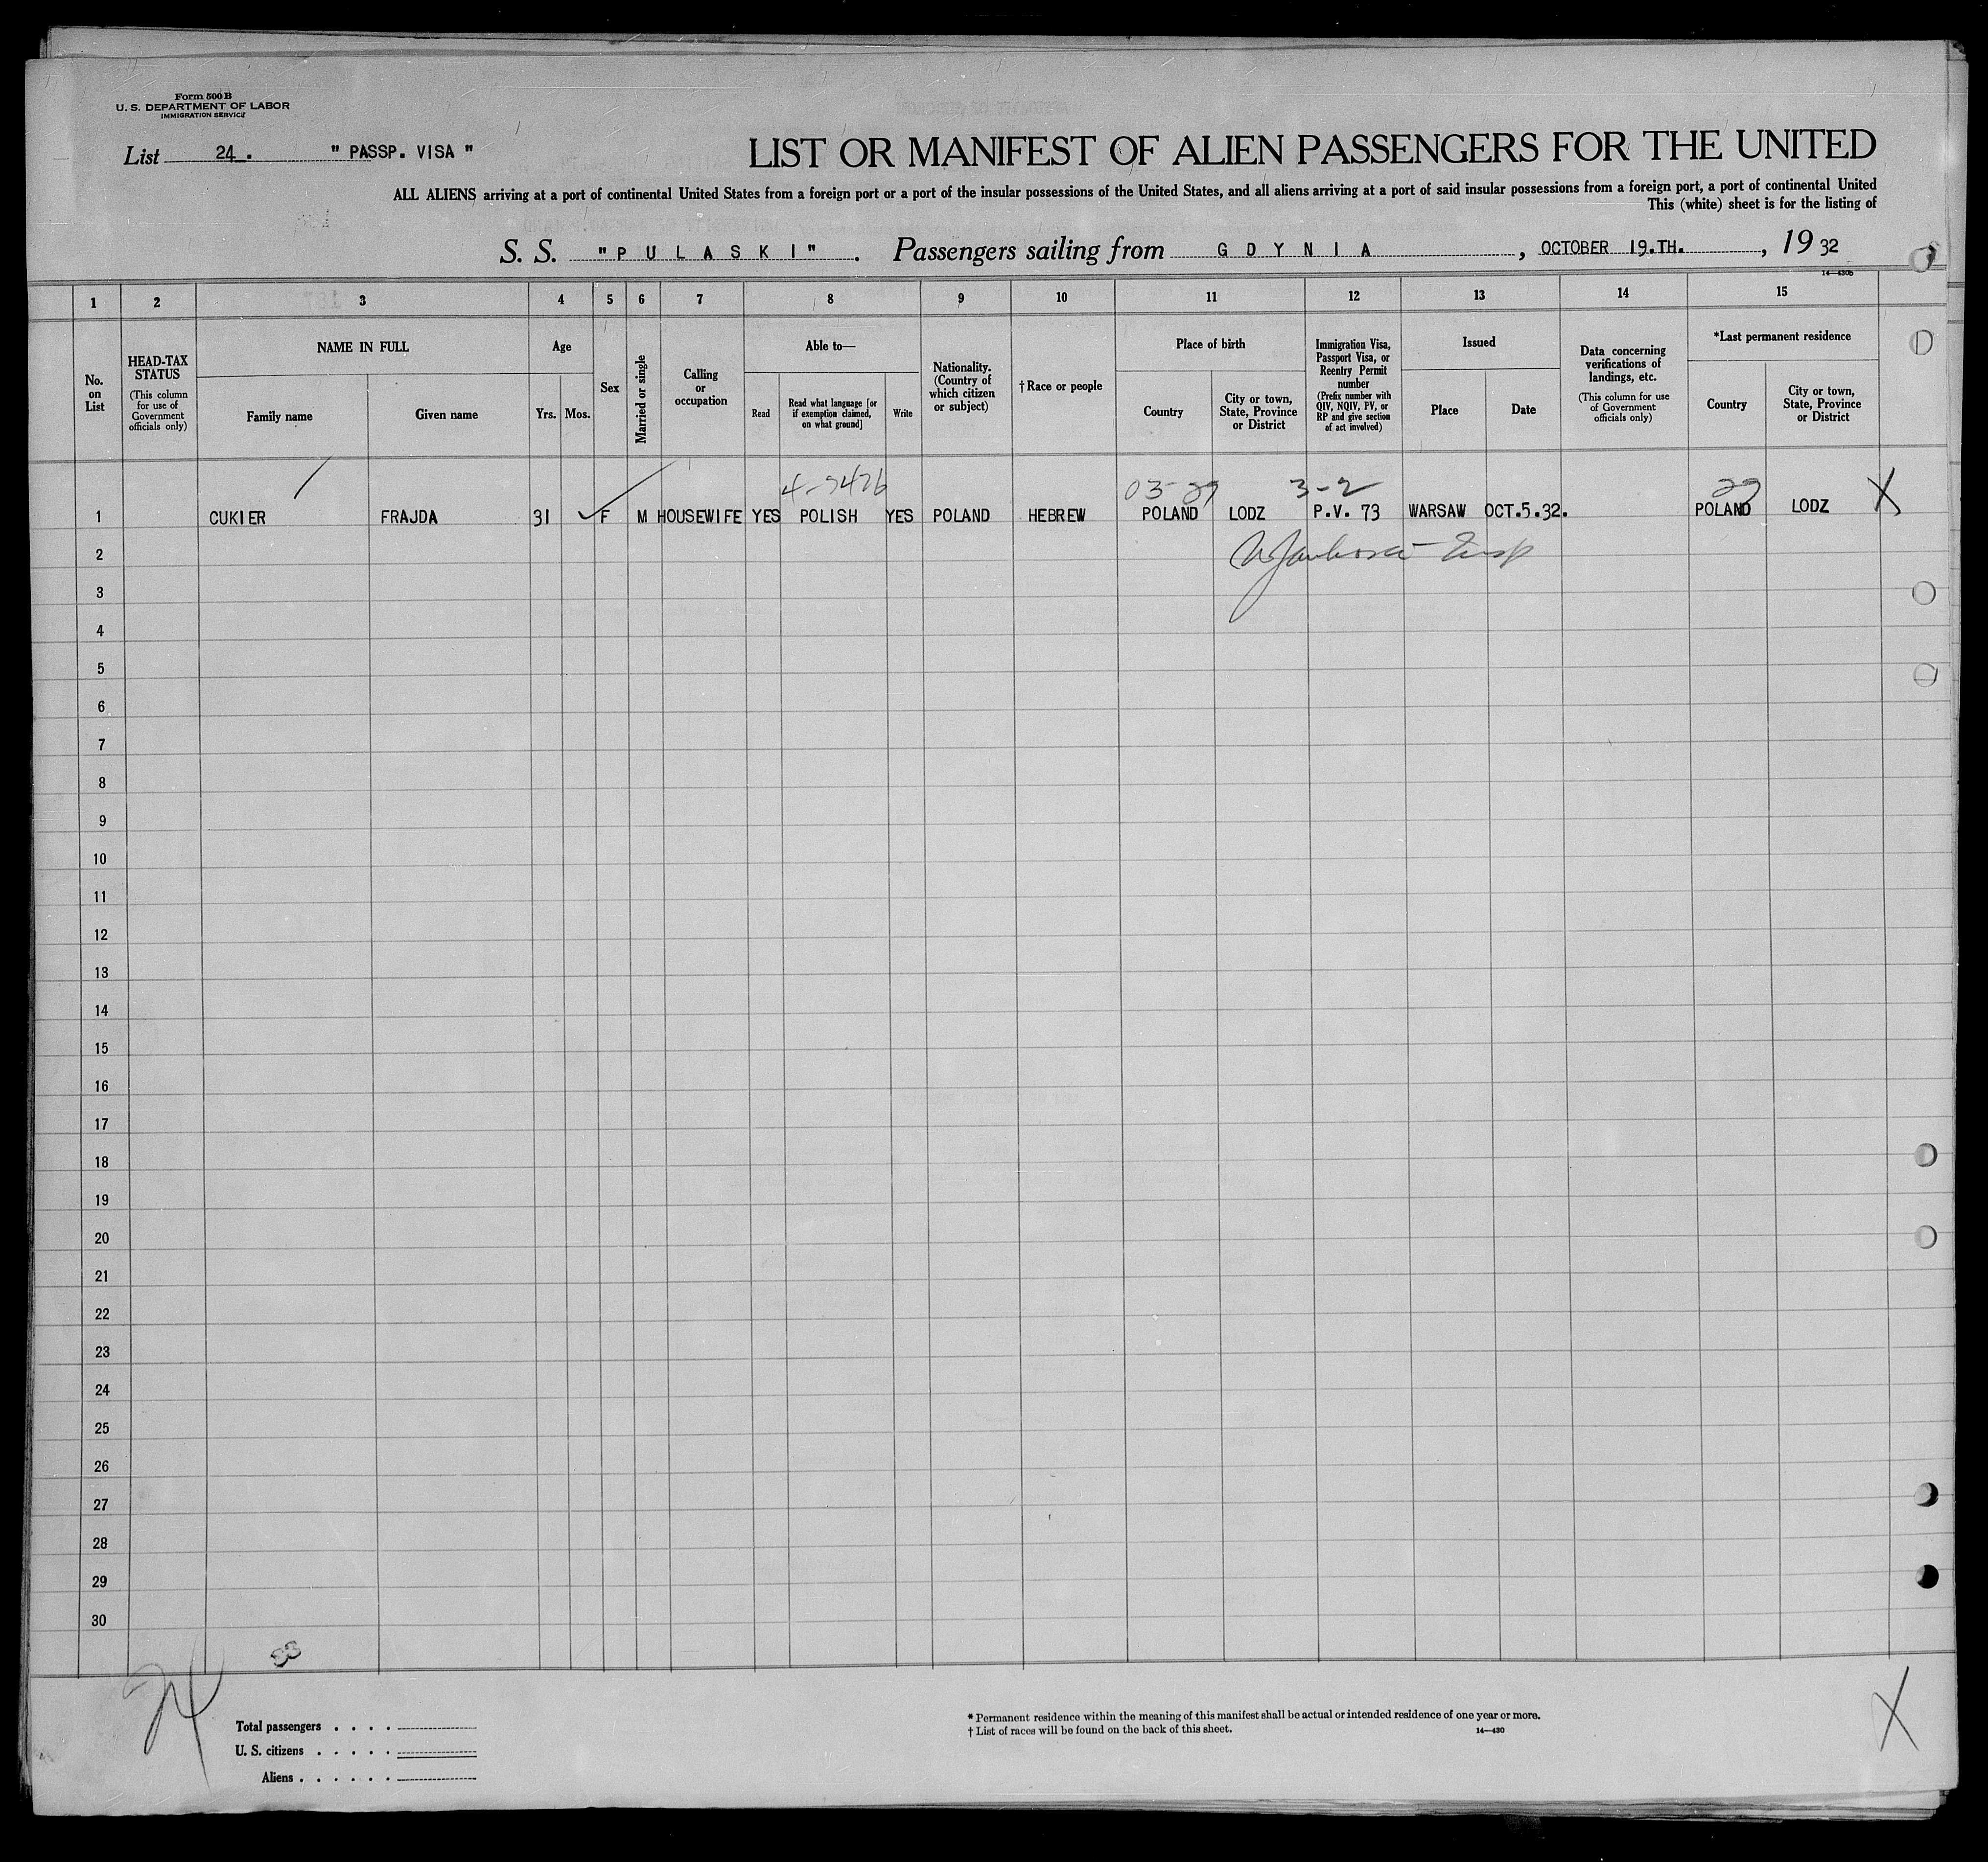 Form 500 B
U. S. DEPARTMENT OF LABOR
IMMIGRATION SERVICE
List 24. " PASSP. VISA "
LIST OR MANIFEST OF ALIEN PASSENGERS FOR THE UNITED
ALL ALIENS arriving at a port of continental United States from a foreign port or a port of the insular possessions of the United States, and all aliens arriving at a port of said insular possessions from a foreign port, a port of continental United
This (white) sheet is for the listing of
S. S. "P U L A S K I" . Passengers sailing from G D Y N I A , OCTOBER 19.TH. , 19 32
14—430b
1 2 3 4 5 6 7 8 9 10 11 12 13 14 15
No. on List
HEAD-TAX STATUS
(This column for use of Government officials only)
NAME IN FULL
Family name
Given name
Age
Yrs.
Mos.
Sex
Married or single
Calling or occupation
Able to—
Read
Read what language [or if exemption claimed, on what ground]
Write
Nationality. (Country of which citizen or subject)
†Race or people
Place of birth
Country
City or town, State, Province or District
Immigration Visa, Passport Visa, or Reentry Permit number
(Prefix number with QIV, NQIV, PV, or RP and give section of act involved)
Issued
Place
Date
Data concerning verifications of landings, etc.
(This column for use of Government officials only)
*Last permanent residence
Country
City or town, State, Province or District
03-29 3-2 29
1 CUKIER FRAJDA 31 F M HOUSEWIFE YES POLISH YES POLAND HEBREW POLAND LODZ P.V. 73 WARSAW OCT.5.32. POLAND LODZ X
2
3
4
5
6
7
8
9
10
11
12
13
14
15
16
17
18
19
20
21
22
23
24
25
26
27
28
29
30
24
Total passengers . . . .
U. S. citizens . . . . .
Aliens . . . . . .
* Permanent residence within the meaning of this manifest shall be actual or intended residence of one year or more.
† List of races will be found on the back of this sheet. 14—430
X